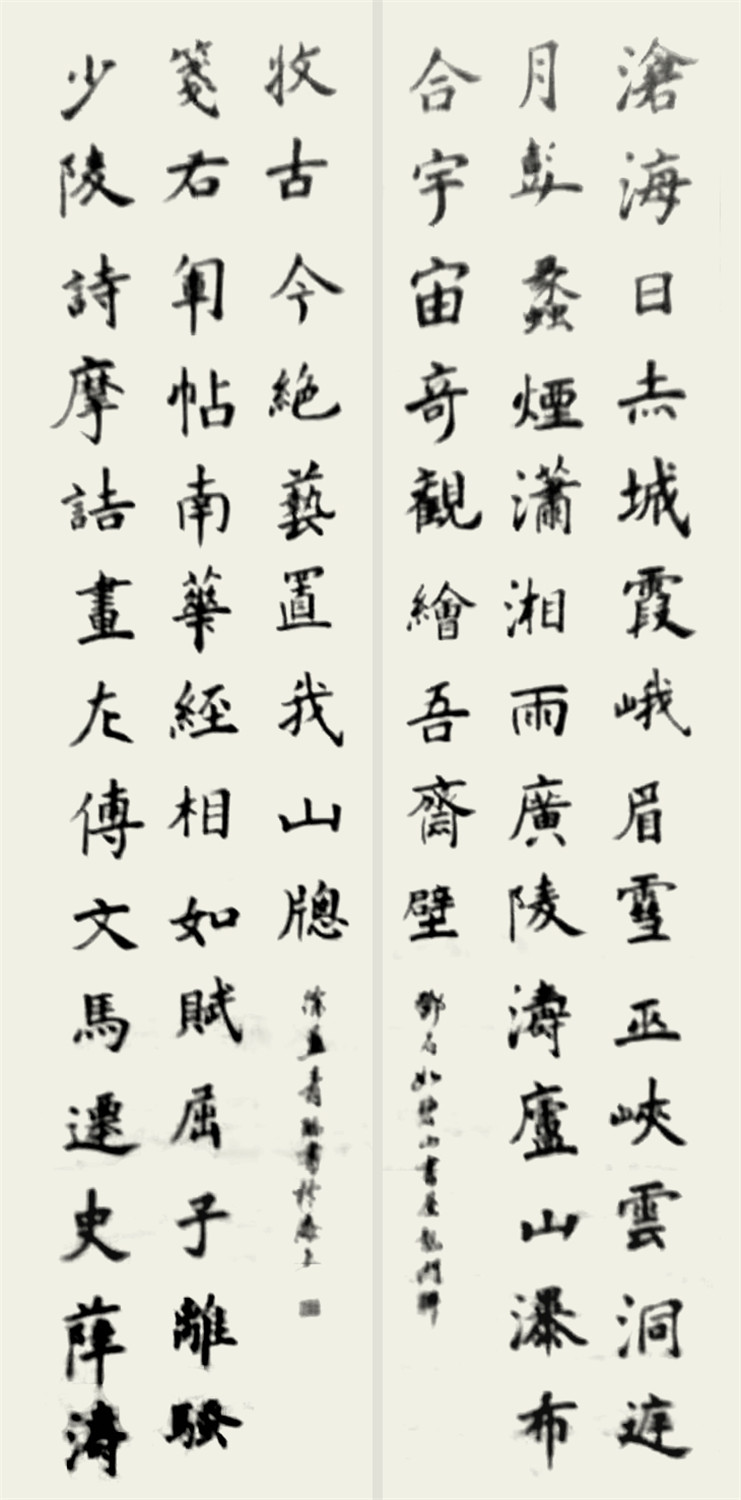 滄海日赤城霞峨眉雪巫峽雲洞庭
月彭蠡煙瀟湘雨廣陵濤廬山瀑布
合宇宙奇觀繪吾齋壁
鄧石如碧山書屋龍門聯
少陵詩摩詰畫左傳文馬遷史薛濤
箋右軍帖南華經相如賦屈子離騷
收古今絕藝置我山牕
徐孟青書於海上